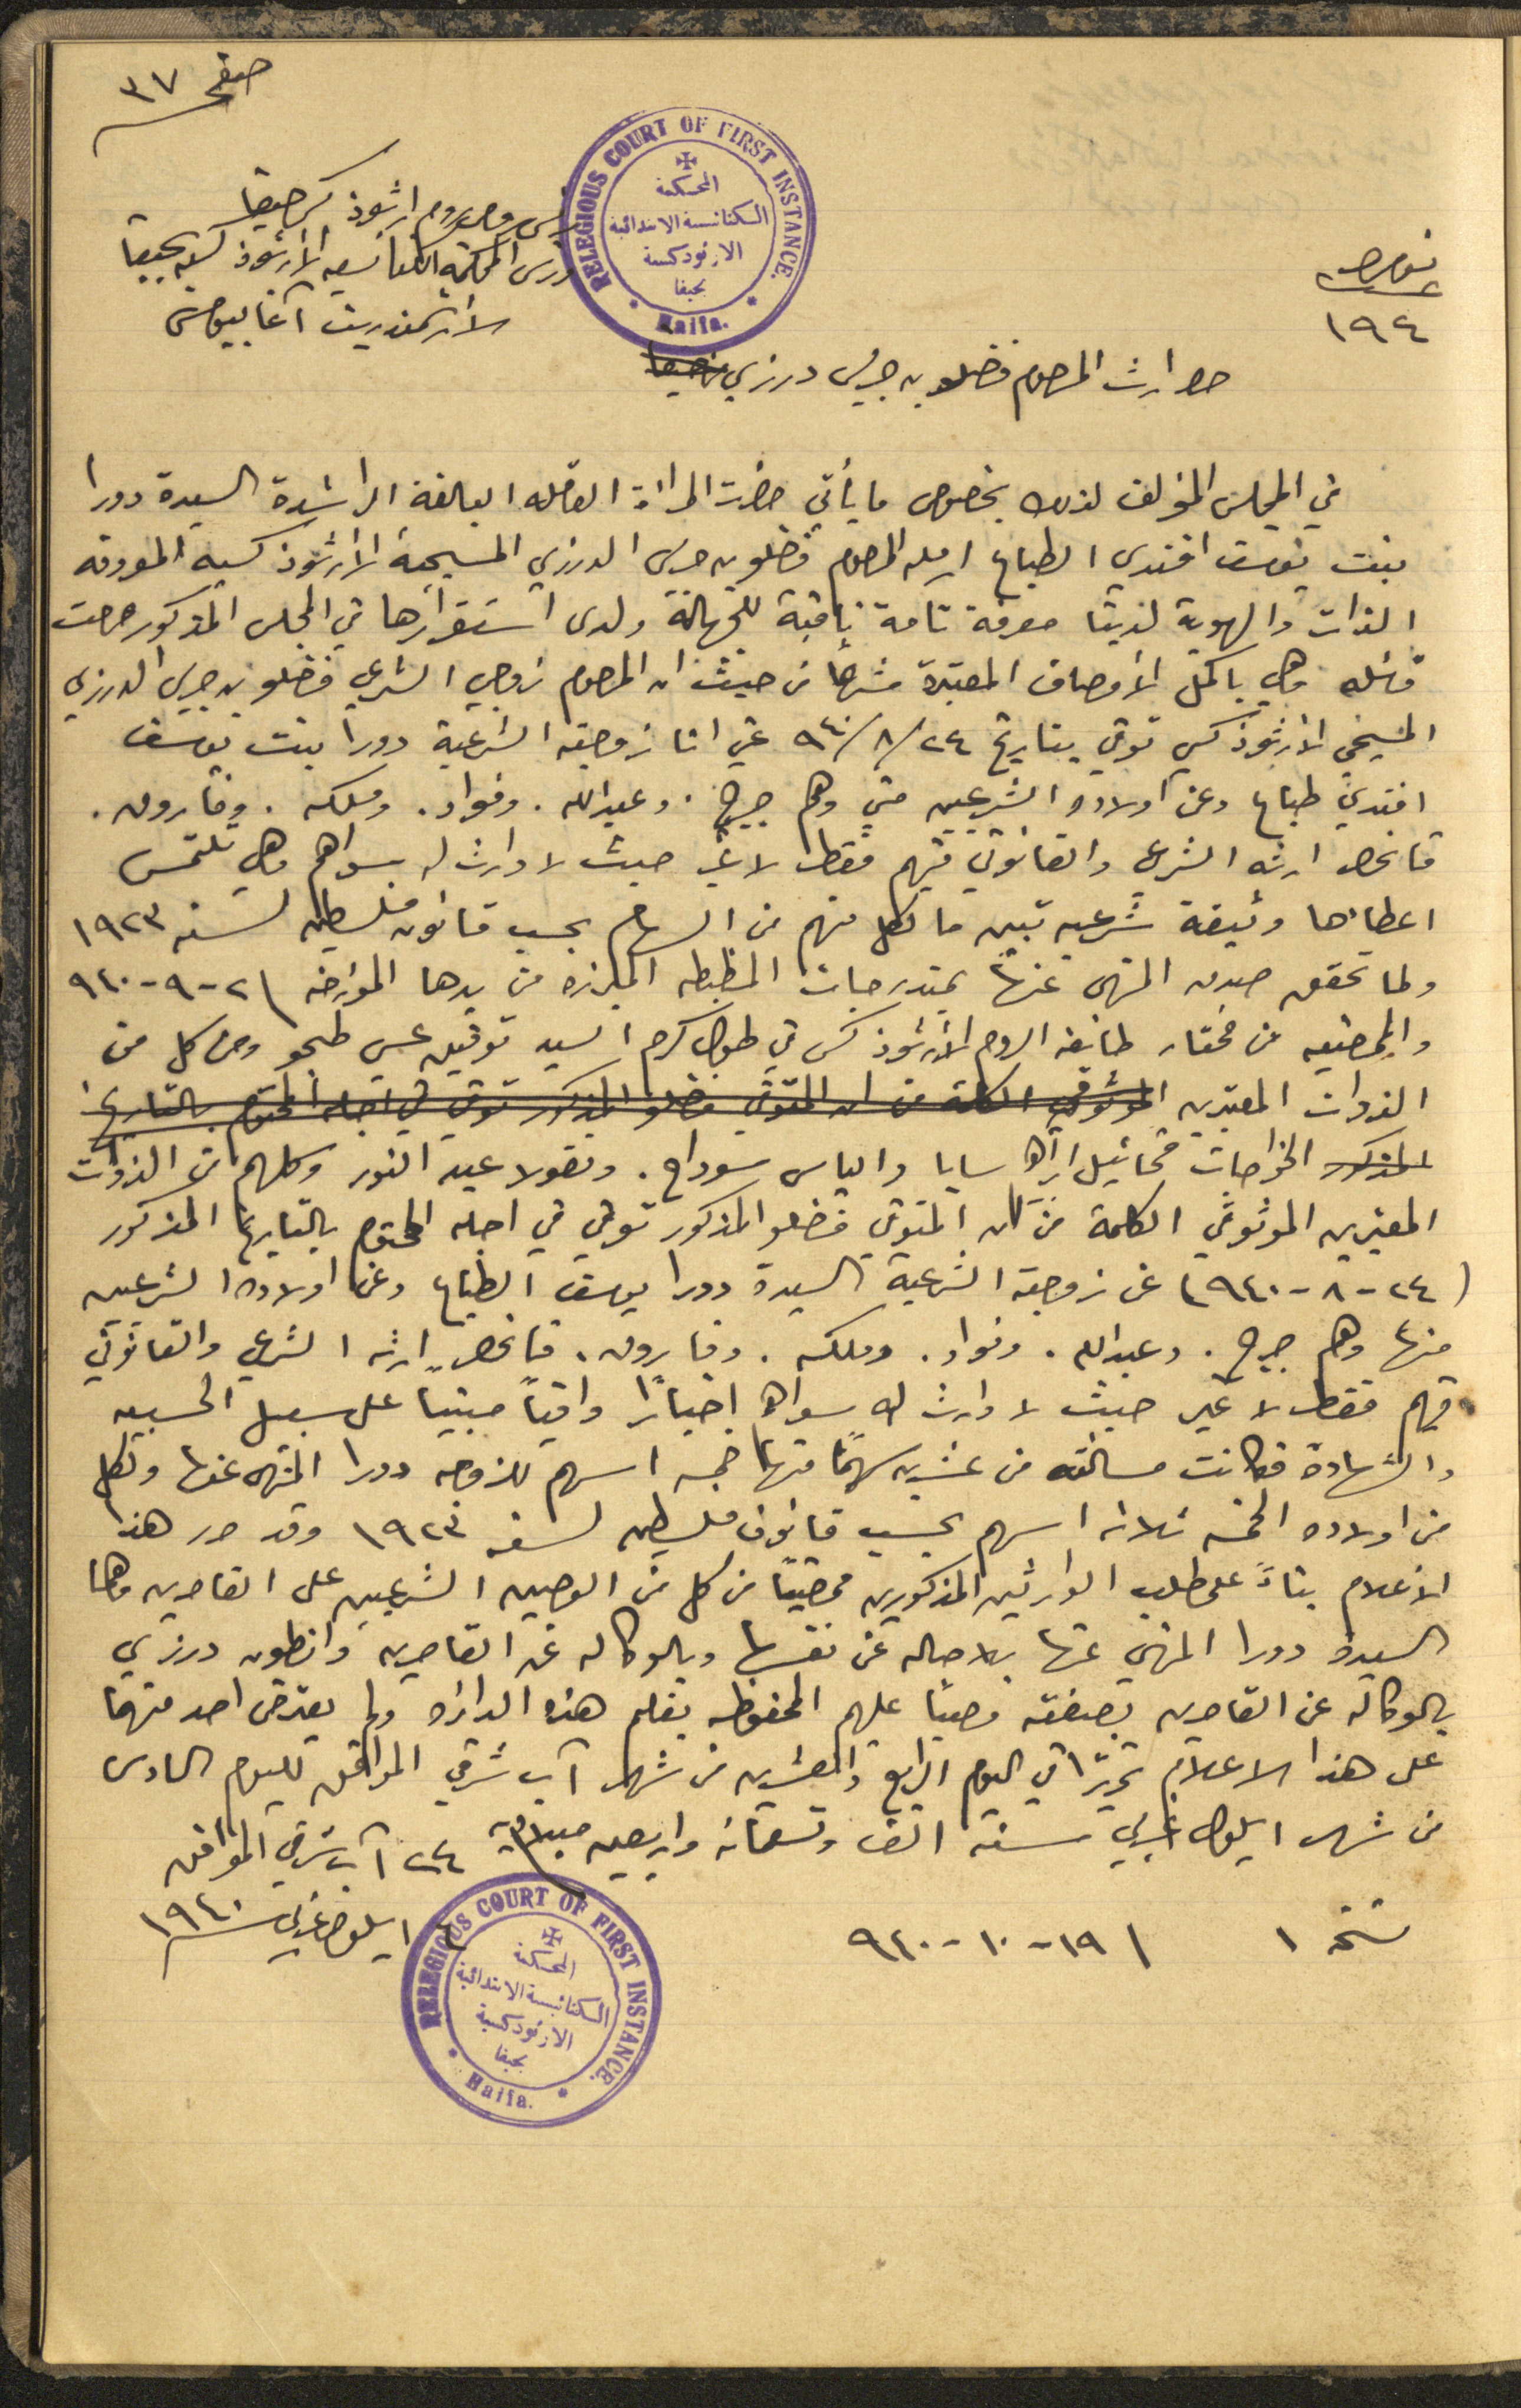 صفحة ٣٧
RELEGIOUS COURT OF FIRST INSTANCE.
المحكمة
الكنائسية الابتدائية
الارثوذكسية
بحيفا
Haifa.
رئيس روم ارثوذكس حيفا
ورئيس المحكمة الكنائسية الأرثوذكسية بحيفا
الأرشمندريت آغابيوس
نومرو
١٩٤
حصر ارث المرحوم فضلو بن جريس درزي
في المجلس المؤلف لذلك بخصوص ما يأتي حضرت المرأة العاقله البالغة الراشدة السيدة دورا
بنت يوسف افندي الطباع ارملة المرحوم فضلو بن جريس الدرزي المسيحية الأرثوذكسية المعروفة
الذات والهوية لدينا معرفة تامة نافية للجهالة ولدى استقرارها في المجلس المذكور صرحت
قائله وهي باكمل الأوصاف المعتبرة شرعاً من حيث ان المرحوم زوجي الشرعي فضلو بن جريس الدرزي
المسيحي الأرثوذكسي توفي بتاريخ ٢٤/٨/٩٤٠ عني انا زوجته الشرعية دورا بنت يوسف
افندي طباع وعن أولاده الشرعيين مني وهم جريج . وعبدالله . وفواد . وملكه . وفاروق .
فانحصر ارثه الشرعي والقانوني فيهم فقط لا غير حيث لا وارث له سواهم وهي تلتمس
اعطاءها وثيقة شرعيه تبين ما لكل منهم من السهام بحسب قانون فلسطين لسنة ١٩٢٣
ولما تحقق صدق المنهى عنها بمندرجات المظبطه المبرزه من يدها المؤرخه ٢١-٩-٩٤٠
والممضيه من مختار طائفة الروم الأرثوذكس في طولكرم السيد توفيق عيسى ومن كل من
الذوات المعتبرين الموثوقي الكلمة من ان المتوفي فضلو المذكور توفي في اجله المحتوم بالتاريخ
المذكور الخواجات مخائيل سابا والياس سوداح . ونقولا عبد النور وكلهم من الذوات
المعتبرين الموثوقي الكلمة من ان المتوفي فضلو المذكور توفي في اجله المحتوم بالتاريخ المذكور
(٢٤-٨-٩٤٠) عن زوجته الشرعية السيدة دورا يوسف الطباع وعن اولاده الشرعيين
منها وهم جريج . وعبدالله . وفواد . وملكه . وفاروق . فانحصر ارثه الشرعي والقانوني
فيهم فقط لا غير حيث لا وارث له سواهم اخباراً وافياً مبنياً على سبيل الحسبيه
والشهادة فكانت مسألته من عشرين سهماً منها خمسه اسهم للزوجه دورا المنهى عنها ولكل
من اولاده الخمسه ثلاثه اسهم بحسب قانون فلسطين لسنة ١٩٢٣ وقد حرر هذا
الاعلام بناءً على طلب الوارثين المذكورين ممضيًا من كل من الوصيين الشرعيين على القاصرين وهما
السيدة دورا المنهى عنها بالاصاله عن نفسها وبالوكاله عن القاصرين وانطون درزي
بالوكالة عن القاصرين بصفته وصياً عليهم المحفوظه بقلم هذه الدائره ولم يعترض احد منهما
على هذا الاعلام تحريرًا في اليوم الرابع والعشرين من شهر آب شرقي الموافق لليوم السادس
من شهر ايلول غربي سنة الف وتسعمائه واربعين ميلادية ٢٤ آب شرقي الموافق
٦ ايلول غربي سنة ١٩٤٠
نسخه ١ ١٩-١٠-٩٤٠
RELEGIOUS COURT OF FIRST INSTANCE.
المحكمة
الكنائسية الابتدائية
الارثوذكسية
بحيفا
Haifa.